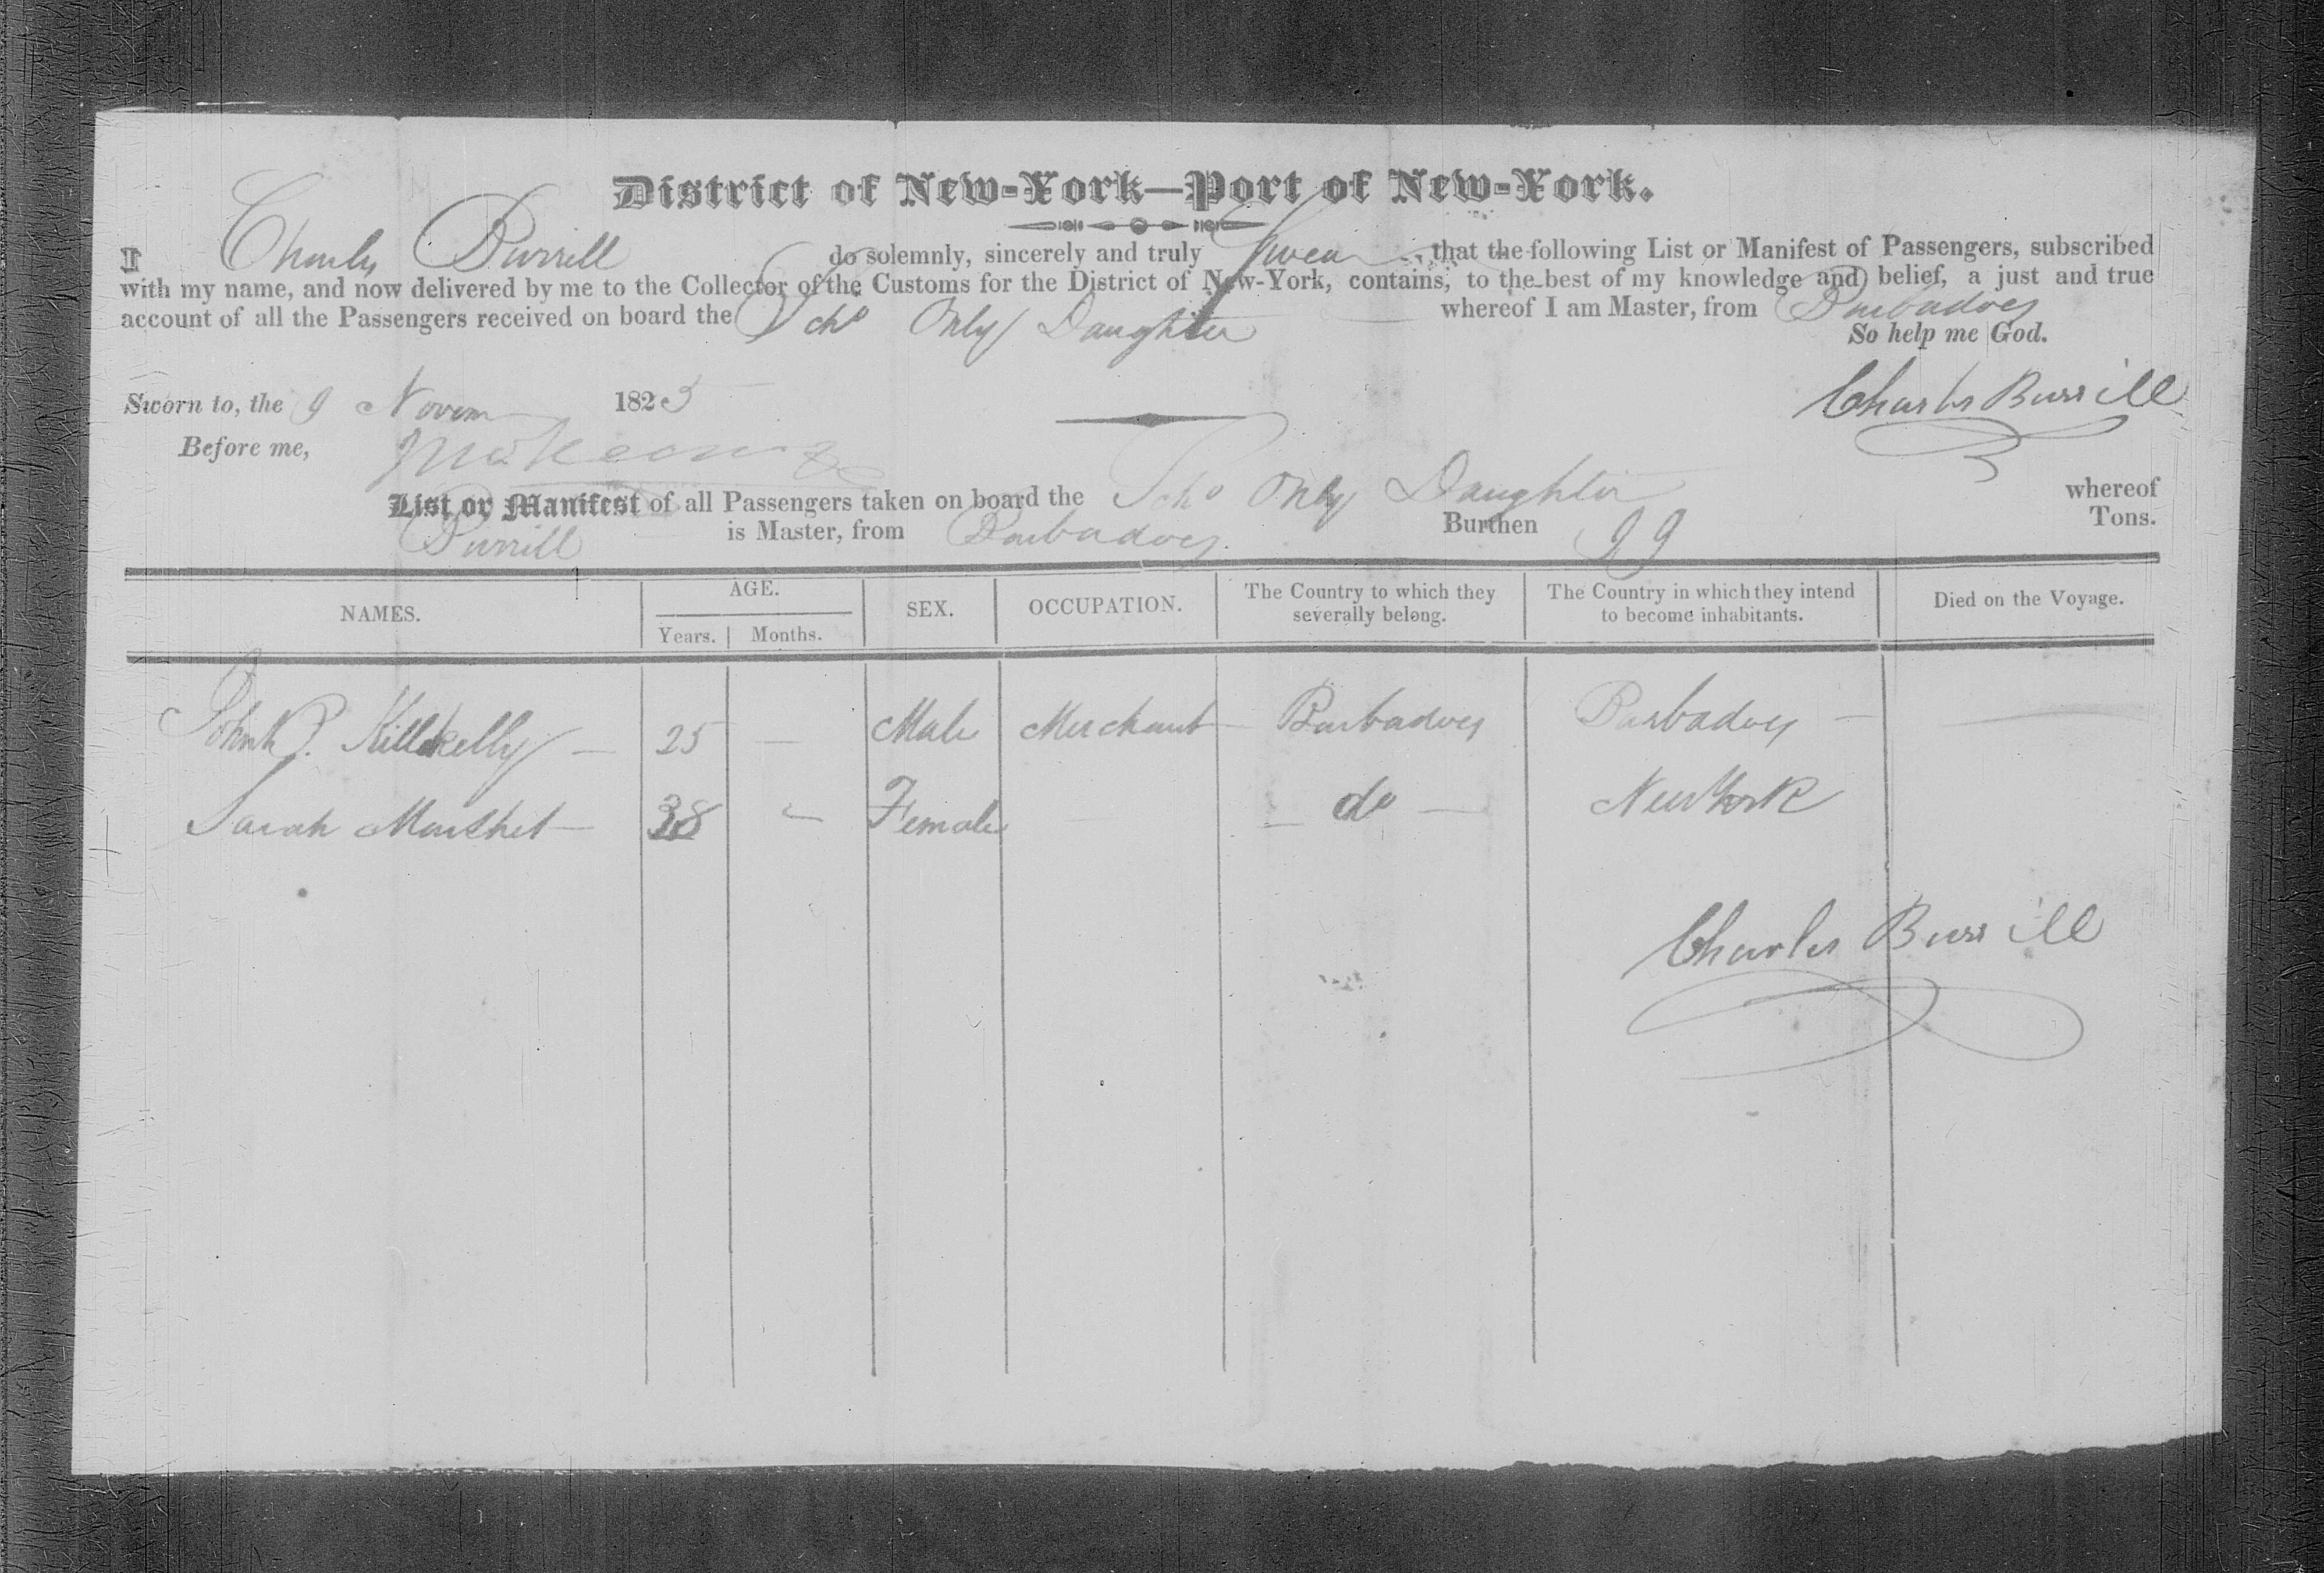 District of New-York—Port of New-York.
I Charles Burrill do solemnly, sincerely and truly Swear that the following List or Manifest of Passengers, subscribed
with my name, and now delivered by me to the Collector of the Customs for the District of New-York, contains, to the best of my knowledge and belief, a just and true
account of all the Passengers received on board the Schr Only Daughter whereof I am Master, from Barbadoes
So help me God.
Sworn to, the 9 Novem 1823
Charles Burrill
Before me,
List or Manifest of all Passengers taken on board the Schr Only Daughter whereof
Burrill is Master, from Barbadoes Burthen 99 Tons.
NAMES. AGE. SEX. OCCUPATION. The Country to which they severally belong. The Country in which they intend to become inhabitants. Died on the Voyage.
Years. Months.
John P. Killkelly — 25 — Male Merchant — Barbadoes Barbadoes —
Sarah — 38 — Female — do — New York
Charles Burrill